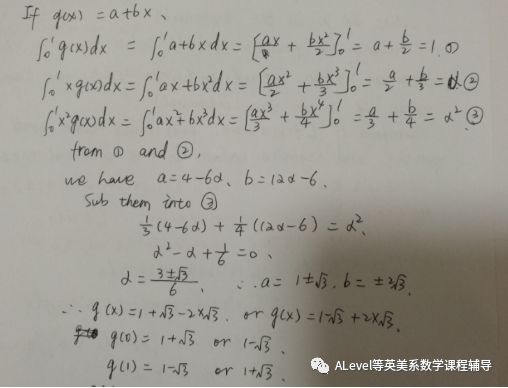 If g(x) = a+bx、
∫₀¹g(x)dx = ∫₀¹a+bxdx = [ax + bx²/2]₀¹ = a + b/2 = 1. ①
∫₀¹xg(x)dx = ∫₀¹ax+bx²dx = [ax²/2 + bx³/3]₀¹ = a/2 + b/3 = α ②
∫₀¹x²g(x)dx = ∫₀¹ax²+bx³dx = [ax³/3 + bx⁴/4]₀¹ = a/3 + b/4 = α² ③
from ① and ②,
we have a=4-6α、b=12α-6.
Sub them into ③
1/3(4-6α) + 1/4(12α-6) = α².
α²-α+1/6=0、
α = (3±√3)/6. ∴ a = 1±√3. b = ±2√3.
∴ g(x)=1+√3-2x√3. or g(x)=1-√3+2x√3.
g(0) = 1+√3 or 1-√3.
g(1) = 1-√3 or 1+√3.
ALevel等英美系数学课程辅导